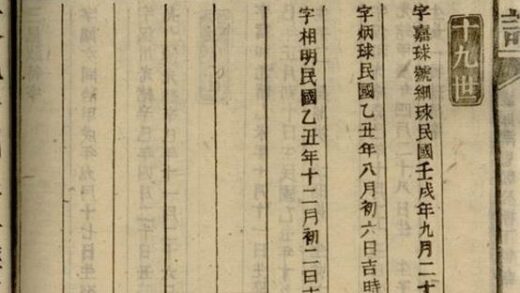 十九世
字嘉球號細球民國壬戌年九月二十
字炳球民國乙丑年八月初六日吉時
字相明民國乙丑年十二月初二日吉